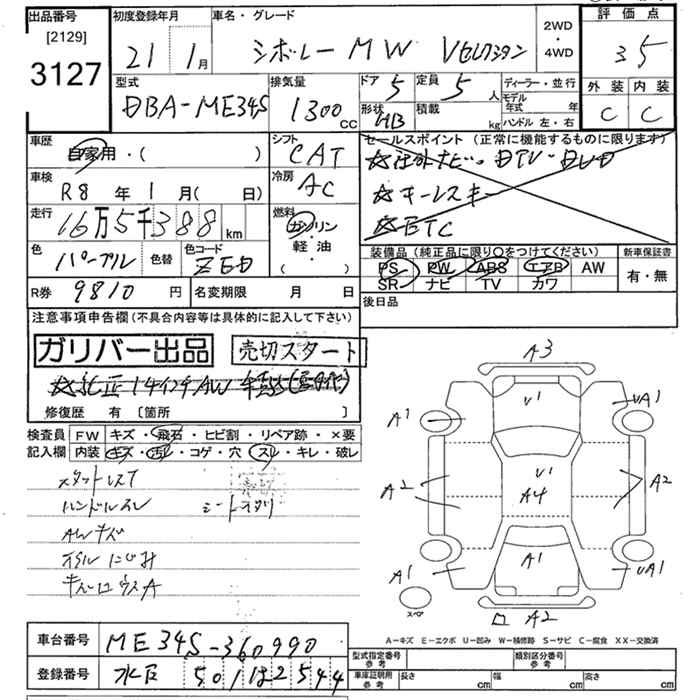 出品番号 初度登録年月 車名・グレード 2WD・4WD 評価点
[2129]
3127
21 1月 シボレー MW Vセレクション 35
型式 排気量 ドア 5 定員 5人 ディーラー・並行 外装 内装
DBA-ME34S 1300CC 形状 HB 積載 kg モデル年式 年 C C
ハンドル 左・右
車歴 自家用・( ) シフト CAT セールスポイント (正常に機能するものに限ります)
☆社外ナビ・DTV・DVD
車検 R8年1月( 日) 冷房 AC ☆キーレスキー
走行 16万5千388km 燃料 ガソリン・軽油・( ) ☆ETC
色 パープル 色替 色コード ZED 装備品 (純正品に限り○をつけてください) 新車保証書
PS PW ABS エアB AW 有・無
R券 9810円 名変期限 月 日 SR ナビ TV カワ
後日品
注意事項申告欄(不具合内容等は具体的に記入して下さい)
ガリバー出品 売切スタート
修復歴 有 [箇所 ]
検査員 FW キズ・飛石・ヒビ割・リペア跡・×要
記入欄 内装 キズ・汚レ・コゲ・穴・スレ・キレ・破レ
スタットレスT
ハンドルスレ シートスタリ
AWキズ
オイルにじみ
A3
V1
A1 UA1
A2 V1 A2
A4
A1
A1 UA1
スペア
A2
A-キズ E-エクボ U-凹み W-補修跡 S-サビ C-腐食 XX-交換済
車台番号 ME34S-360990 型式指定番号 参考 類別区分番号 参考
登録番号 水戸 501 は 2544 車庫証明用 参考 長さ cm 幅 cm 高さ cm